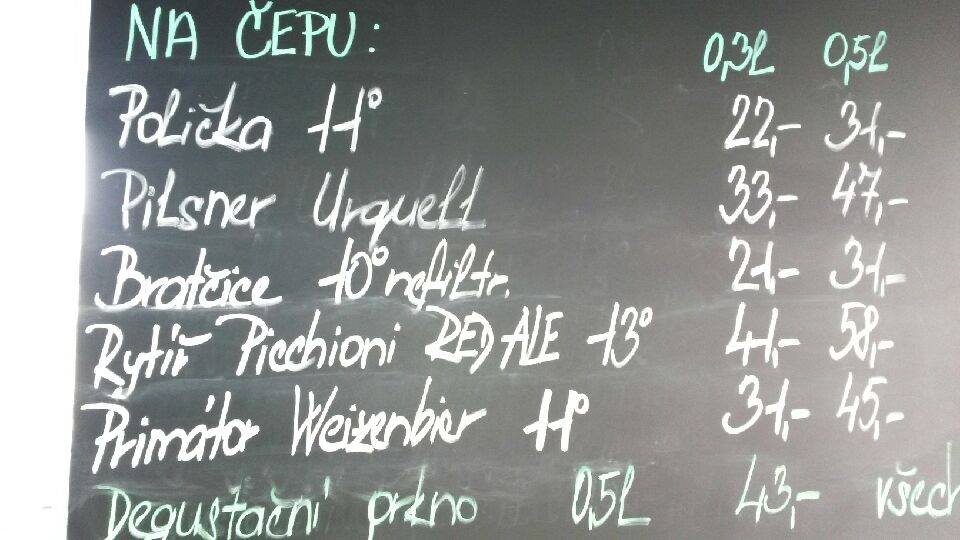 NA ČEPU: 0,3l 0,5l
Polička 11° 22,- 31,-
Pilsner Urquell 33,- 47,-
Bratčice 10° nefiltr. 21,- 31,-
Rytíř Picchioni RED ALE 13° 41,- 58,-
Primátor Weizenbier 11° 31,- 45,-
Degustační prkno 0,5l 43,- všech